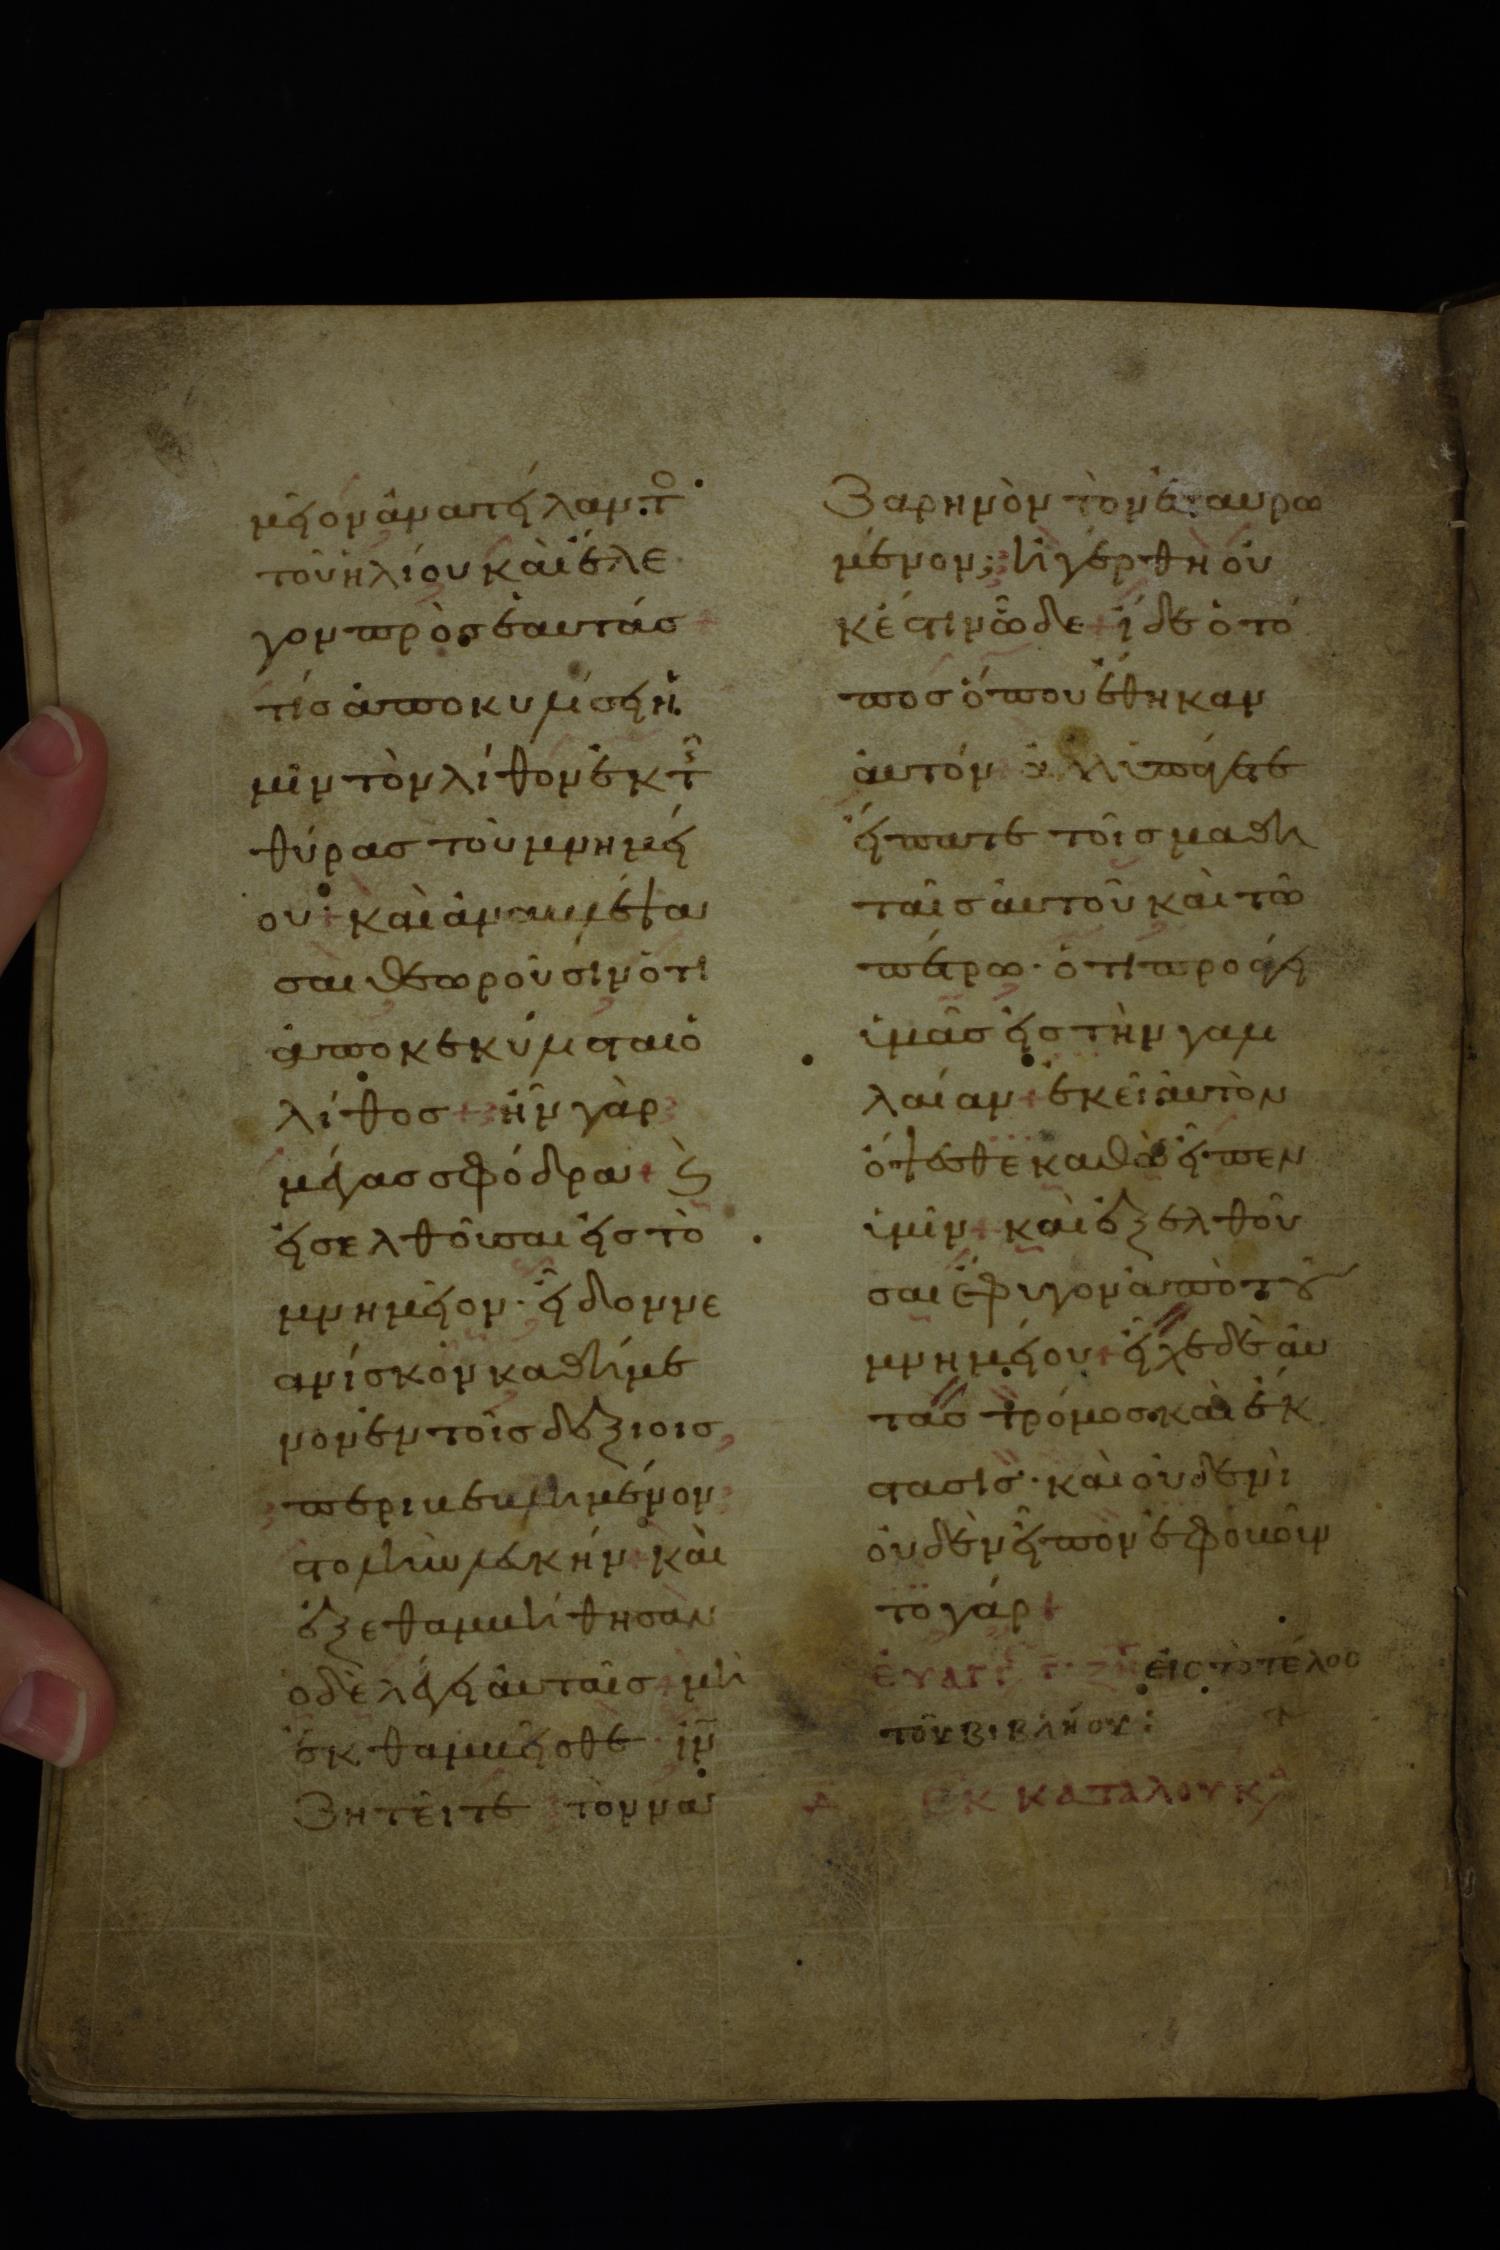 μεῖον ἀναατείλαντο
τοῦ ἡλίου καὶ ἔλε
γον πρὸς ἑαυτάσ
τίσ ἀποκυλίσει ἡ
μῖν τὸν λίθον ἐκ τῆ
θύρασ τοῦ μνημεί
ου + καὶ ἀναβλέψα
σαι θεωροῦσιν ὅτι
ἀποκεκύλισται ὁ
λίθοσ + ἦν γὰρ
μέγασ σφόδρα + ϗ
εἰσελθοῦσαι εἰσ τὸ
μνημεῖον · εἶδον νε
ανίσκον καθήμε
νον ἐν τοῖσ δεξιοισ
περιβεβλημένον
στολὴν λευκήν + καὶ
ἐξεθαμβήθησαν
ὁ δὲ λέγει αὐταῖσ + μὴ
ἐκθαμβεῖσθε · ἰν
ζητεῖτε τὸν να
ζαρηνὸν τὸν ἐσταυρω
μένον ; ἠγέρθη οὐ
κ ἔστιν ὧδε + ἴδε ὁ τό
ποσ ὅπου ἔθηκαν
ἀυτόν ἀλλ ὑπάγετε
εἴπατε τοῖσ μαθη
ταῖσ ἀυτοῦ καὶ τῶ
πέτρω · ὅτι προάγει
ὑμᾶσ εἰσ τὴν γαλι
λαίαν + ἐκεῖ ἀυτὸν
ὄψεσθε καθὼσ εἶπεν
ὑμῖν + καὶ ἐξελθοῦ
σαι ἔφυγον ἀπὸ τοῦ
μνημείου + εἶχε δὲ ἀυ
τὰσ τρόμοσ καὶ ἔκ
στασισ · καὶ οὐδενὶ
οὐδὲν εἶπον ἐφοβοῦν
το γάρ +
εἰς τὸ τέλος
τοῦ βιβλήου :
ΕΚ ΚΑΤΑ ΛΟΥΚΑ